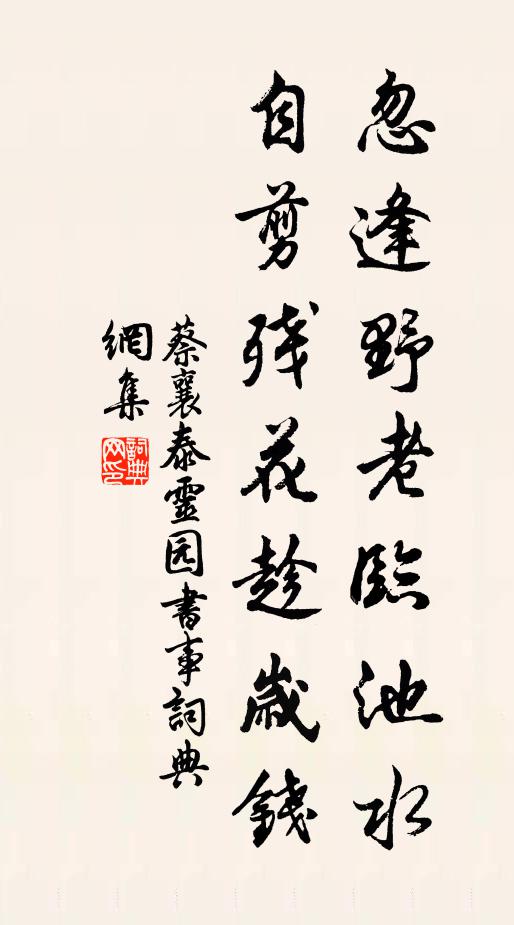 忽逢野老臨池水
自剪残花趁歲錢
蔡襄泰靈园書事詞典
網集
詞典网印